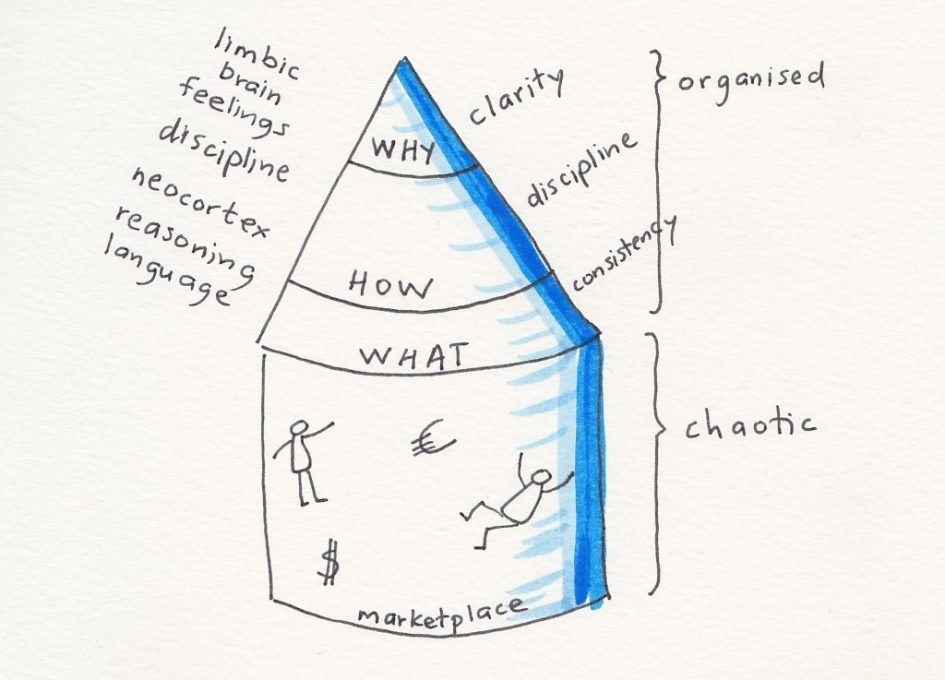 limbic
brain
feelings
discipline
neocortex
reasoning
language
WHY
HOW
WHAT
clarity
discipline
consistency
organised
chaotic
€
$
marketplace